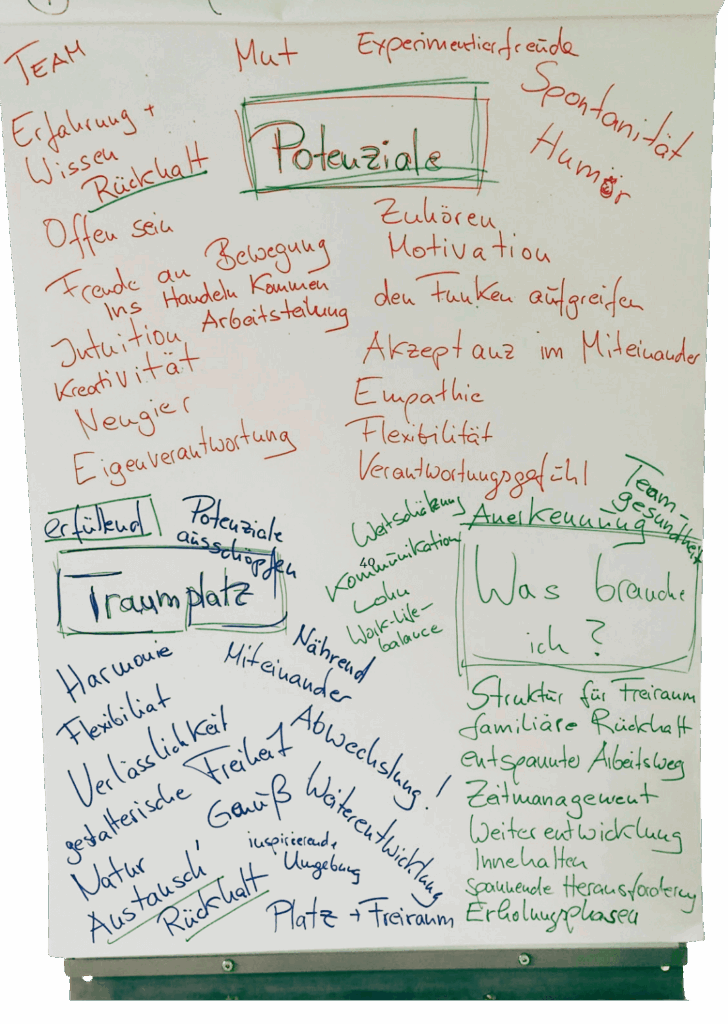 TEAM
Mut
Experimentierfreude
Spontanität
Humor
Erfahrung +
Wissen
Rückhalt
Potenziale
Offen sein
Freude an Bewegung
Ins Handeln kommen
Intuition Arbeitsteilung
Kreativität
Neugier
Eigenverantwortung
Zuhören
Motivation
den Funken aufgreifen
Akzeptanz im Miteinander
Empathie
Flexibilität
Verantwortungsgefühl
erfüllend
Potenziale
ausschöpfen
Traumplatz
Harmonie
Miteinander
Nährend
Flexibiliat
Verlässlichkeit
Abwechslung!
gestalterische Freiheit
Genuß
Weiterentwicklung
Natur
inspirierende
Umgebung
Austausch
Rückhalt
Platz + Freiraum
Wertschätzung
Kommunikation
Lohn
Work-life-
balance
Team-
gesundheit
Anerkennung
Was brauche
ich?
Struktur für Freiraum
familiäre Rückhalt
entspannter Arbeitsweg
Zeitmanagement
Weiterentwicklung
Innehalten
spannende Herausforderung
Erholungsphasen